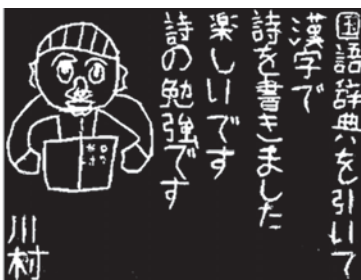 国語辞典を引いて
漢字で
詩を書きました
楽しいです
詩の勉強です
川村